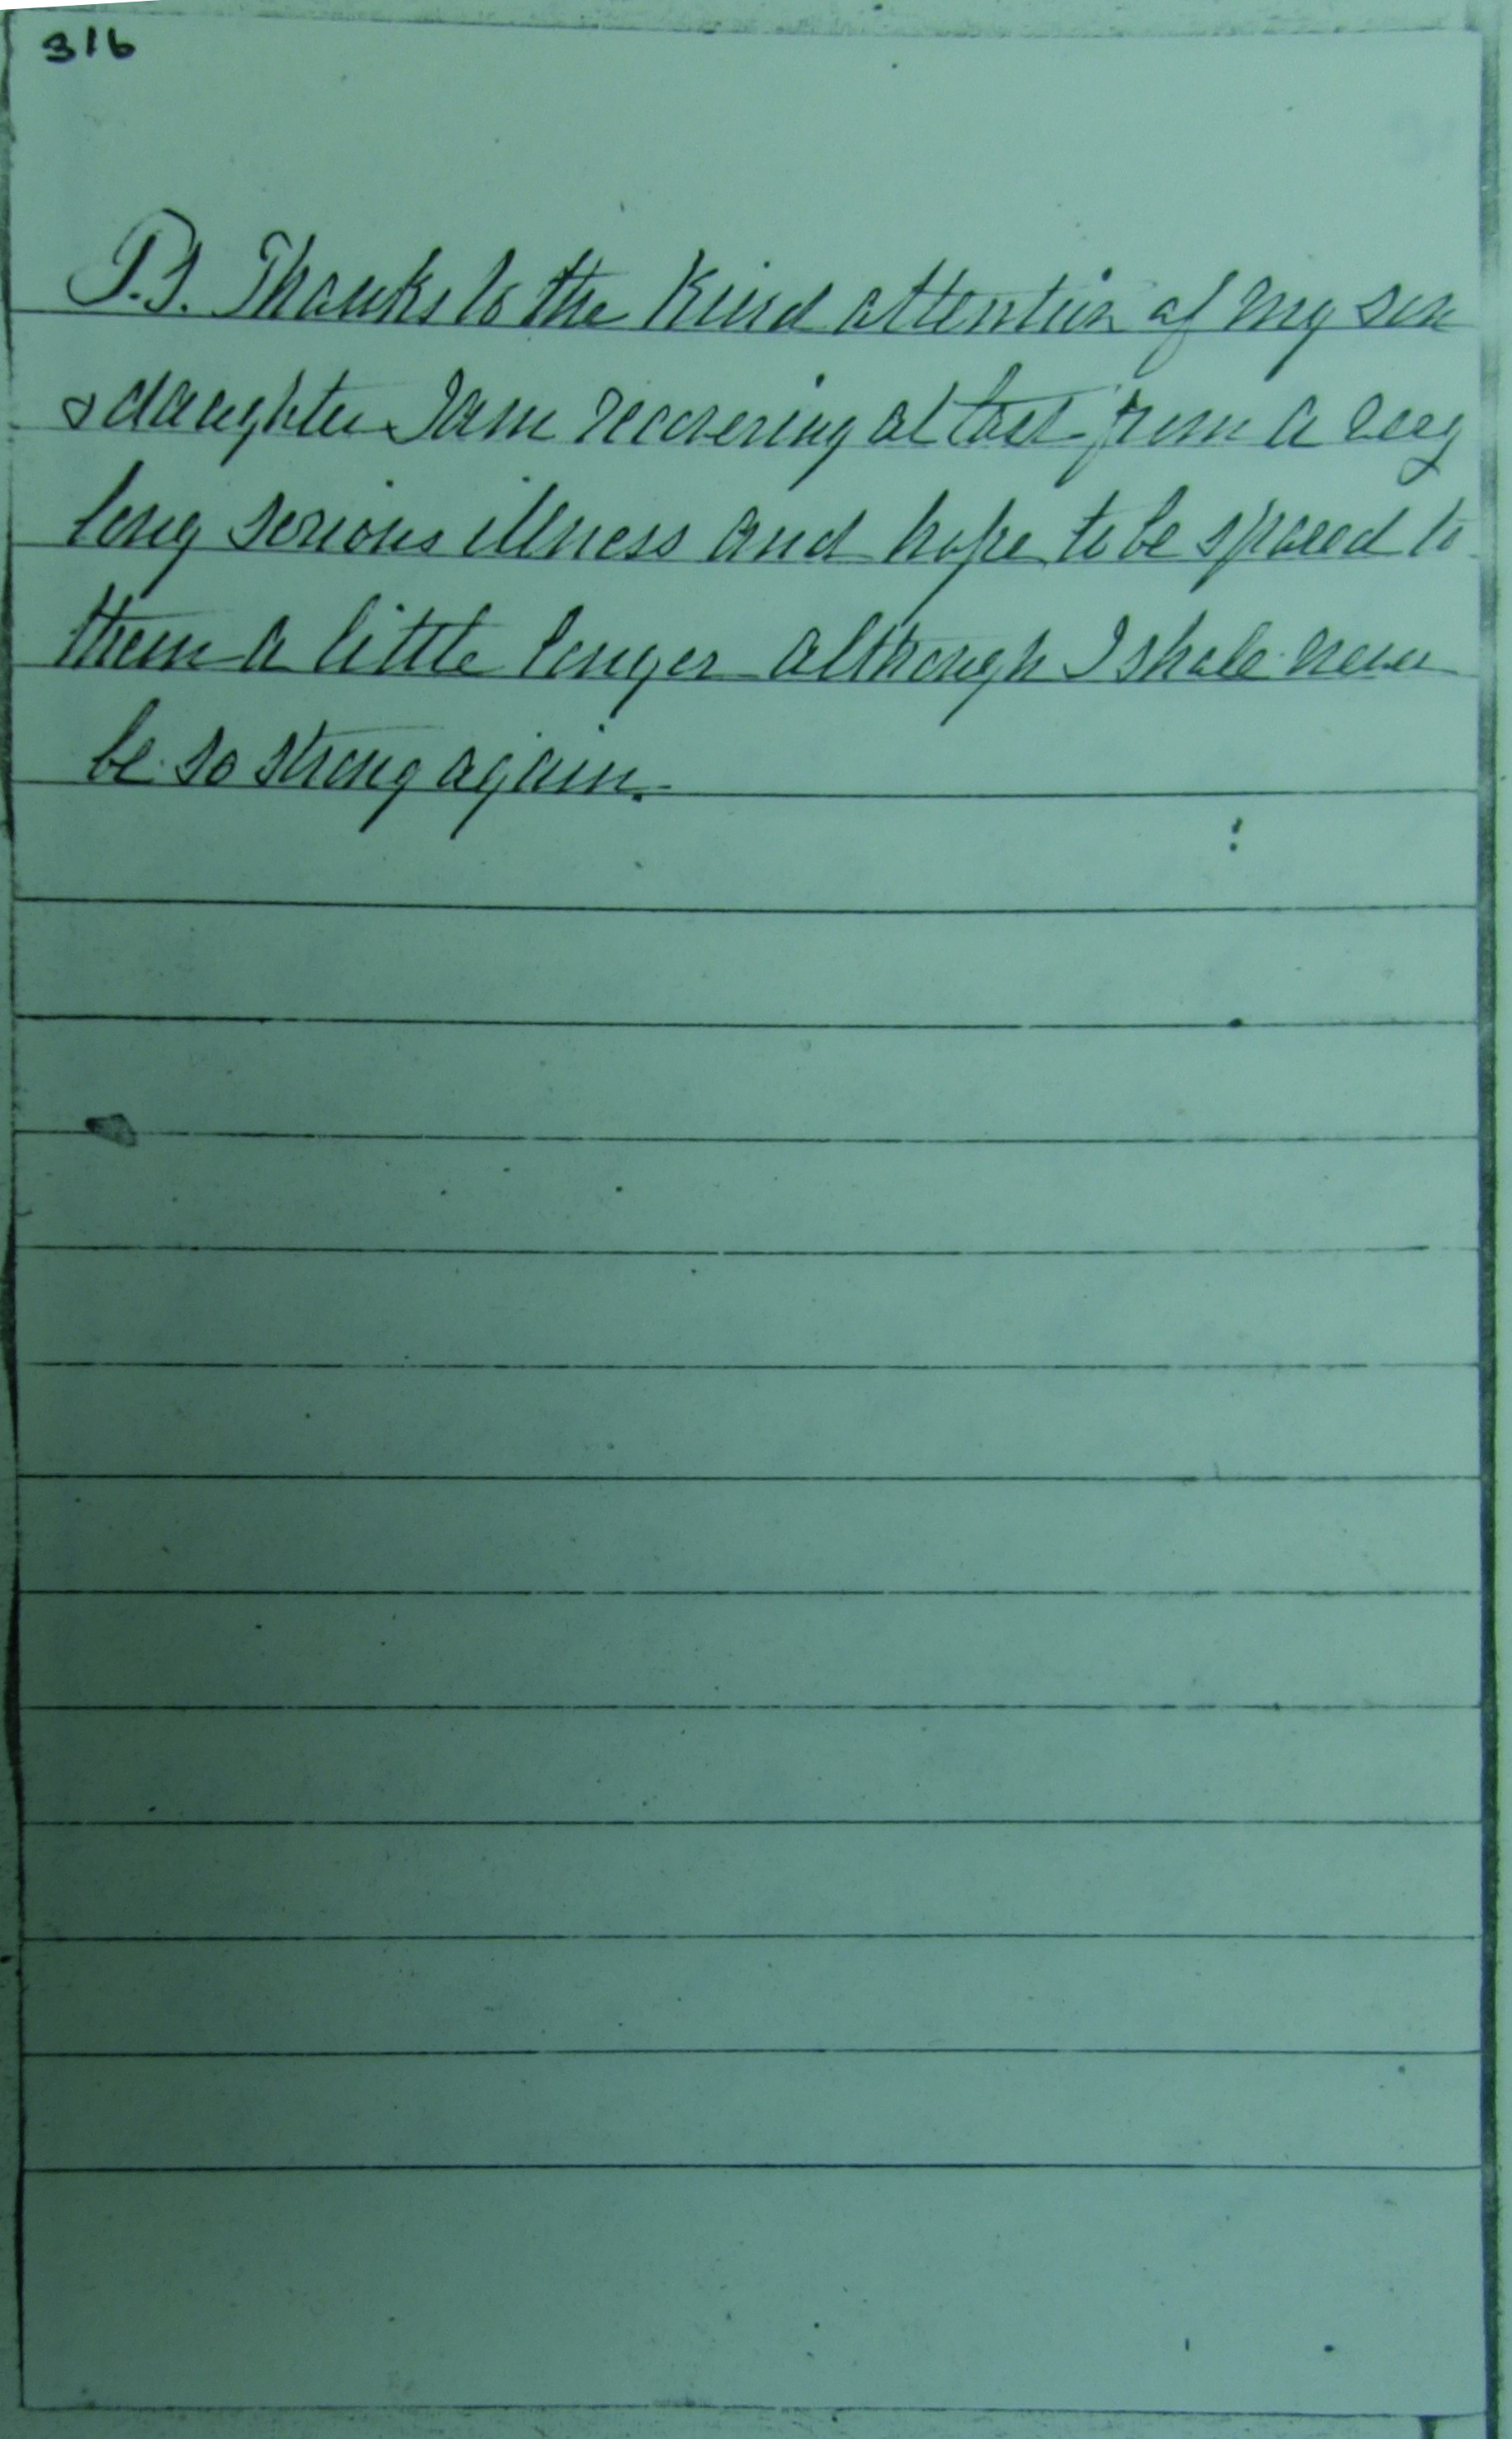 316
P.S. Thanks to the kind attention of my son
& daughter I am recovering at last from a very
long serious illness and hope to be spared to
them a little longer although I shall never
be so strong again.